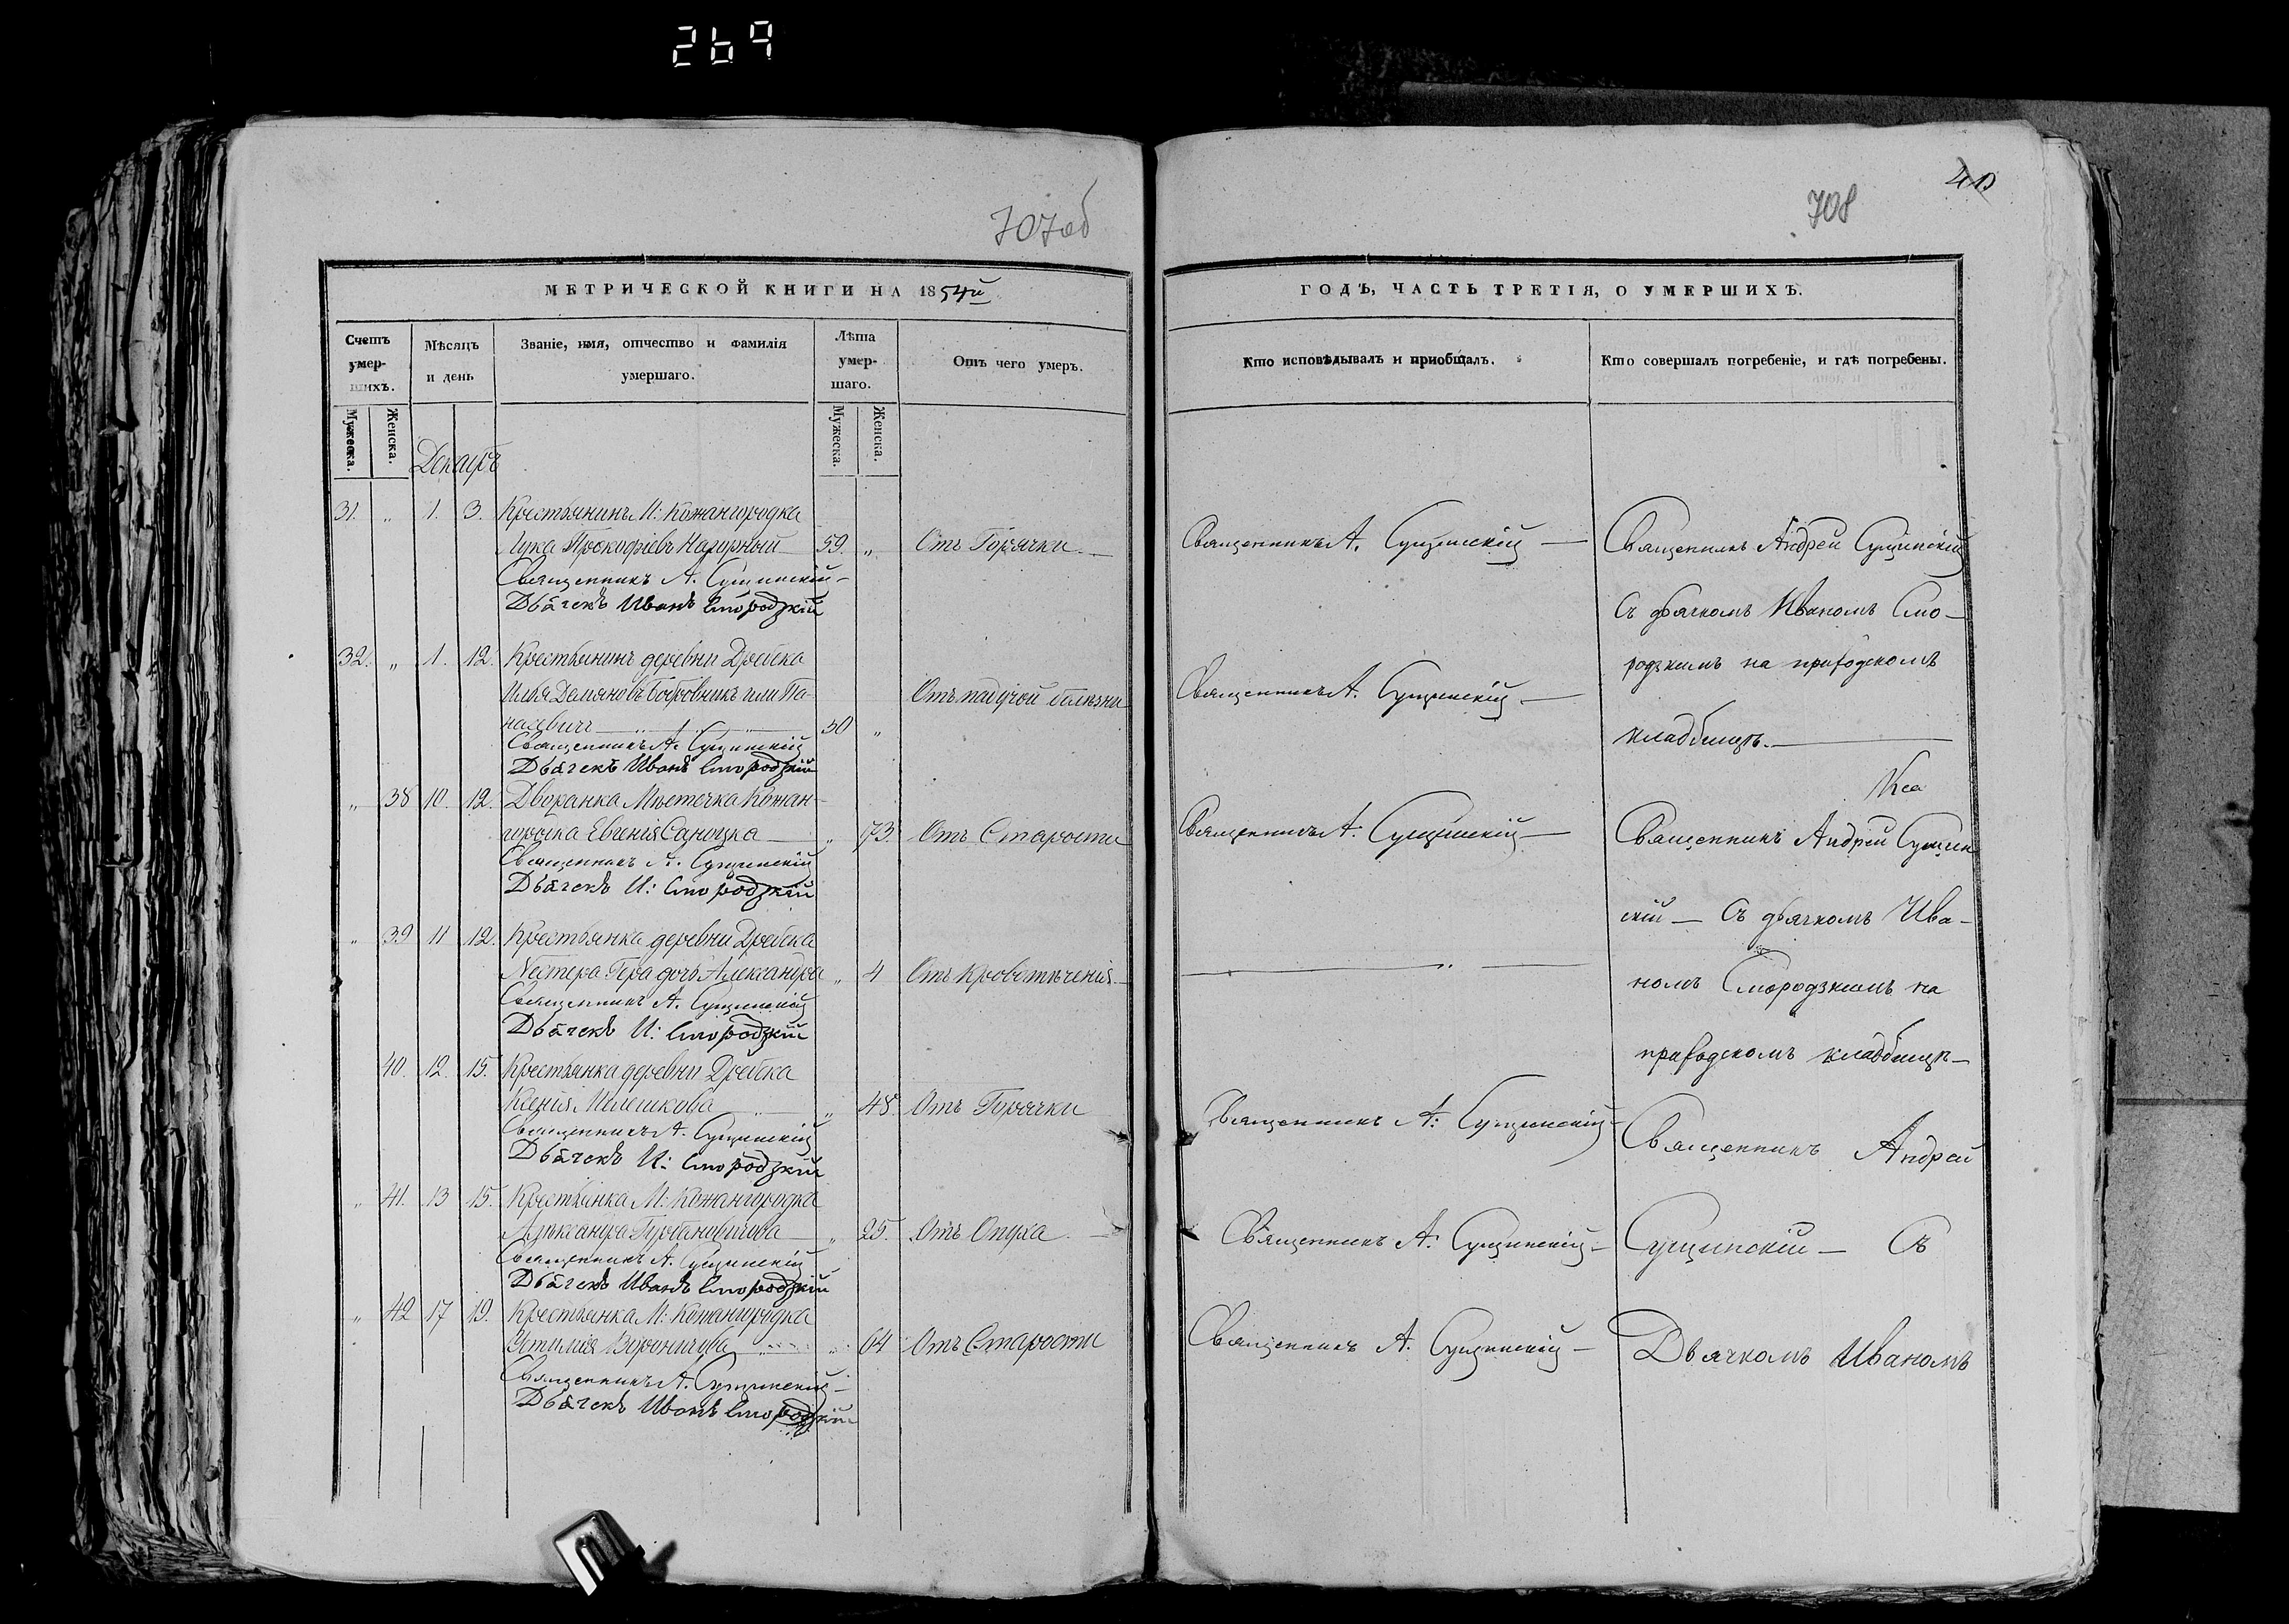 269
707об
МЕТРИЧЕСКОЙ КНИГИ НА 1854й
Счетъ умер-шихъ.
Мѣсяцъ и день
Званіе, имя, отчество и фамилія умершаго.
Лѣта умер-шаго.
Отъ чего умеръ.
Мужеска.
Женска.
Мужеска.
Женска.
Декабрь
31. „ 1. 3. Крестьянинъ М: Кожангородка
Лука Прокофіевъ Нагорный 59. „ Отъ Горячки
Священникъ А. Сущинскій
Дьячекъ Иванъ Смородзкій
32. „ 1. 12. Крестьянинъ деревни Дребска
Илья Демяновъ Бобровникъ или Па-
насевичъ 50 „ Отъ падучой болезни
Священникъ А. Сущинскій
Дьячекъ Иванъ Смородзкій
„ 38 10. 12. Дворанка Мѣстечка Кожан-
городка Евгенія „ 73. Отъ Старости
Священникъ А. Сущинскій
Дьячекъ И: Смородзкій
„ 39 11 12. Крестьянка деревни Дребска
Нестера Гера дочь Александра „ 4 Отъ Кровотѣченія
Священникъ А. Сущинскій
Дьячекъ И: Смородзкій
40. 12. 15. Крестьянка деревни Дребска
Ксенія Мелешкова „ 48. Отъ Горячки
Священникъ А. Сущинскій
Дьячекъ И: Смородзкій
„ 41. 13 15. Крестьянка М: Кожангородка
Александра „ 25. Отъ Опуха
Священникъ А. Сущинскій
Дьячекъ Иванъ Смородзкій
„ 42 17 19. Крестьянка М: Кожангородка
„ 64 Отъ Старости
Священникъ А. Сущинскій
Дьячекъ Иванъ Смородзкій
708
ГОДЪ, ЧАСТЬ ТРЕТІЯ, О УМЕРШИХЪ.
Кто исповѣдывалъ и приобщалъ.
Кто совершалъ погребеніе, и гдѣ погребены.
Священникъ А. Сущинскій
Священникъ А. Сущинскій
Священникъ А: Сущинскій
Священникъ А: Сущинскій
Священникъ А: Сущинскій
Священникъ А. Сущинскій
Священникъ Андрей Сущинскій
Съ дьячкомъ Иваномъ Смо-
родзкимъ на приходскомъ
кладбищѣ.
Священникъ Андрей Сущин
скій — Съ дьячкомъ Ива-
номъ Смородзкимъ на
приходскомъ кладбищѣ
Священникъ Андрей
Сущинскій — Съ
Дьячкомъ Иваномъ